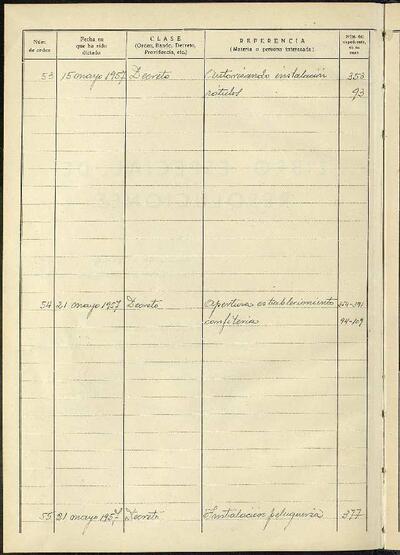 Núm. de orden
Fecha en que ha sido dictado
CLASE
(Orden, Bando, Decreto, Providencia, etc.)
REFERENCIA
(Materia o persona interesada)
Núm. del expediente, en su caso
53 15 mayo 1957 Decreto Autorizando instalación 356
rotulos 93
54 21 mayo 1957 Decreto Apertura establecimiento
confiteria 94-109
55 21 mayo 1957 Decreto Instalacion peluqueria 377